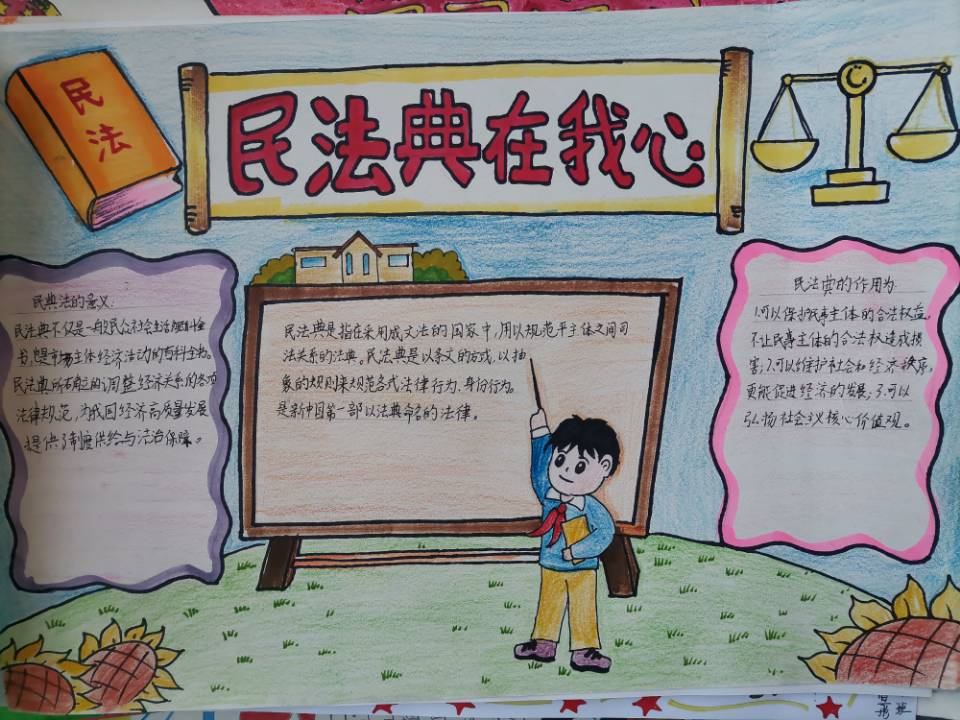 民法
民法典在我心
民典法的意义:
民法典不仅是一般民众社会生活的百科全
书,想市场主体经济活动的百科全书。
民法典所确立的调整经济关系的各项
法律规范,为我国经济高质量发展
提供了制度供给与法治保障。
民法典是指在采用成文法的国家中,用以规范平主体之间司
法关系的法典。民法典是以条文的方式,以抽
象的规则来规范各式法律行为、身份行为。
是新中国第一部以法典命名的法律。
民法典的作用为:
1.可以保护民事主体的合法权益,
不让民事主体的合法权造成损
害;2.可以维护社会和经济秩序,
更能促进经济的发展;3.可以
弘扬社会主义核心价值观。